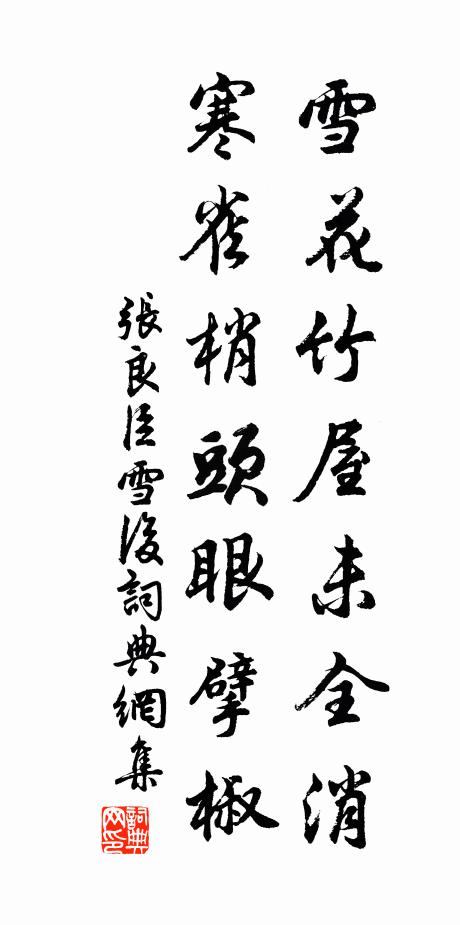 雪花竹屋未全消
寒雀梢頭眼擘椒
張良臣雪後詞典網集
詞典网印